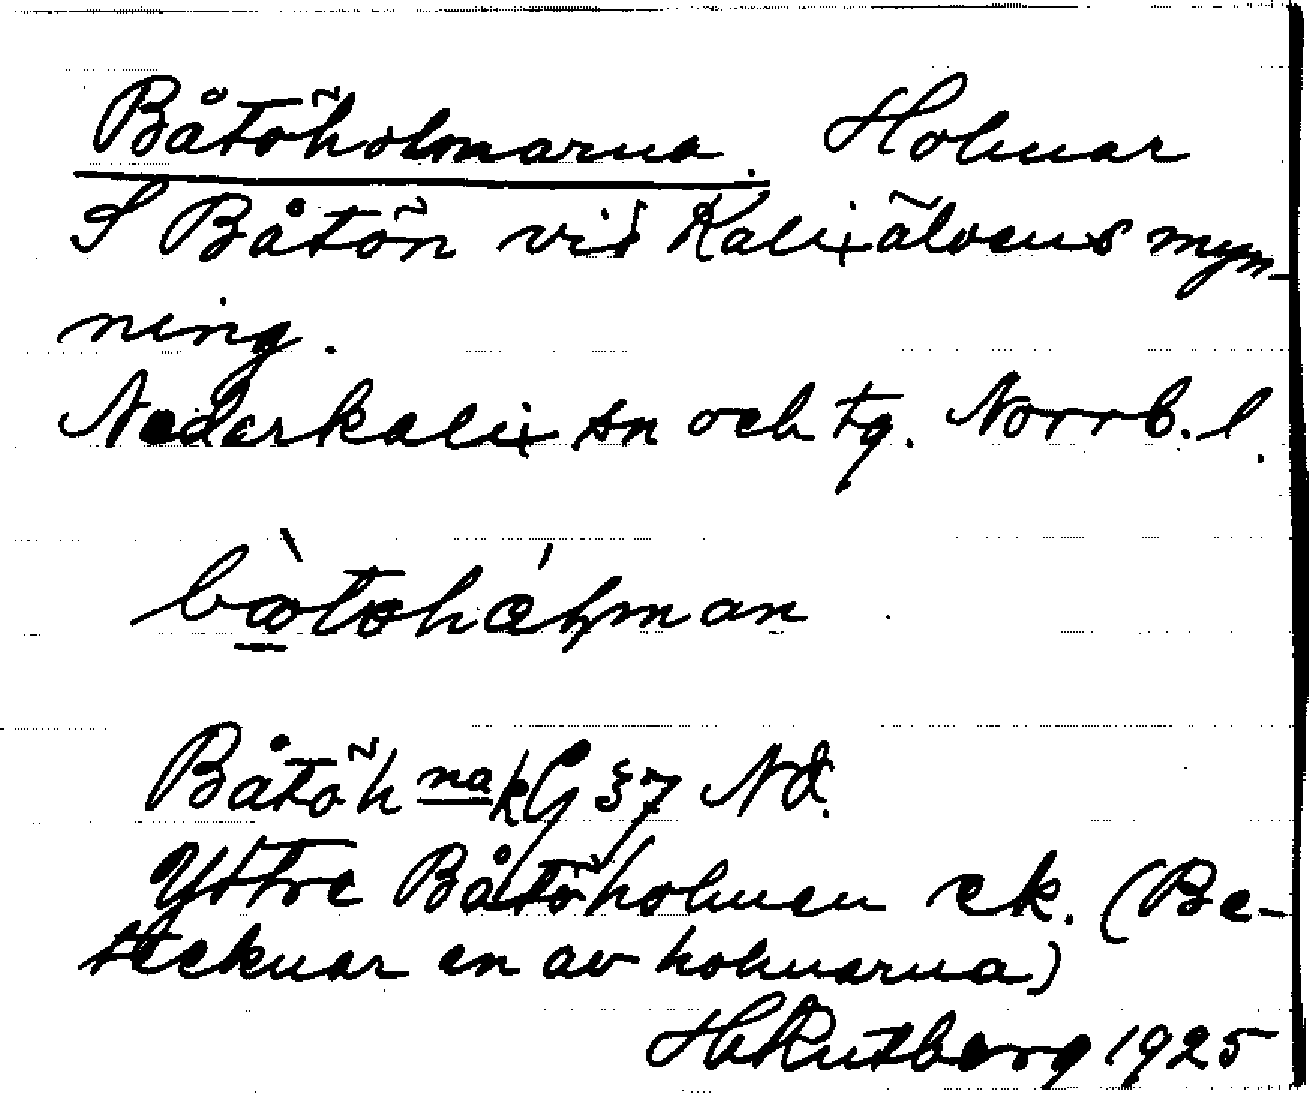 Båtöholmarna. Holmar
S Båtön vid Kalixälvens myn-
ning.
Nederkalix sn och tg. Norrb. l.
Båtöh na kG 37 Nd.
Yttre Båtöholmen ek. (Be-
tecknar en av holmarna)
H Rutberg 1925